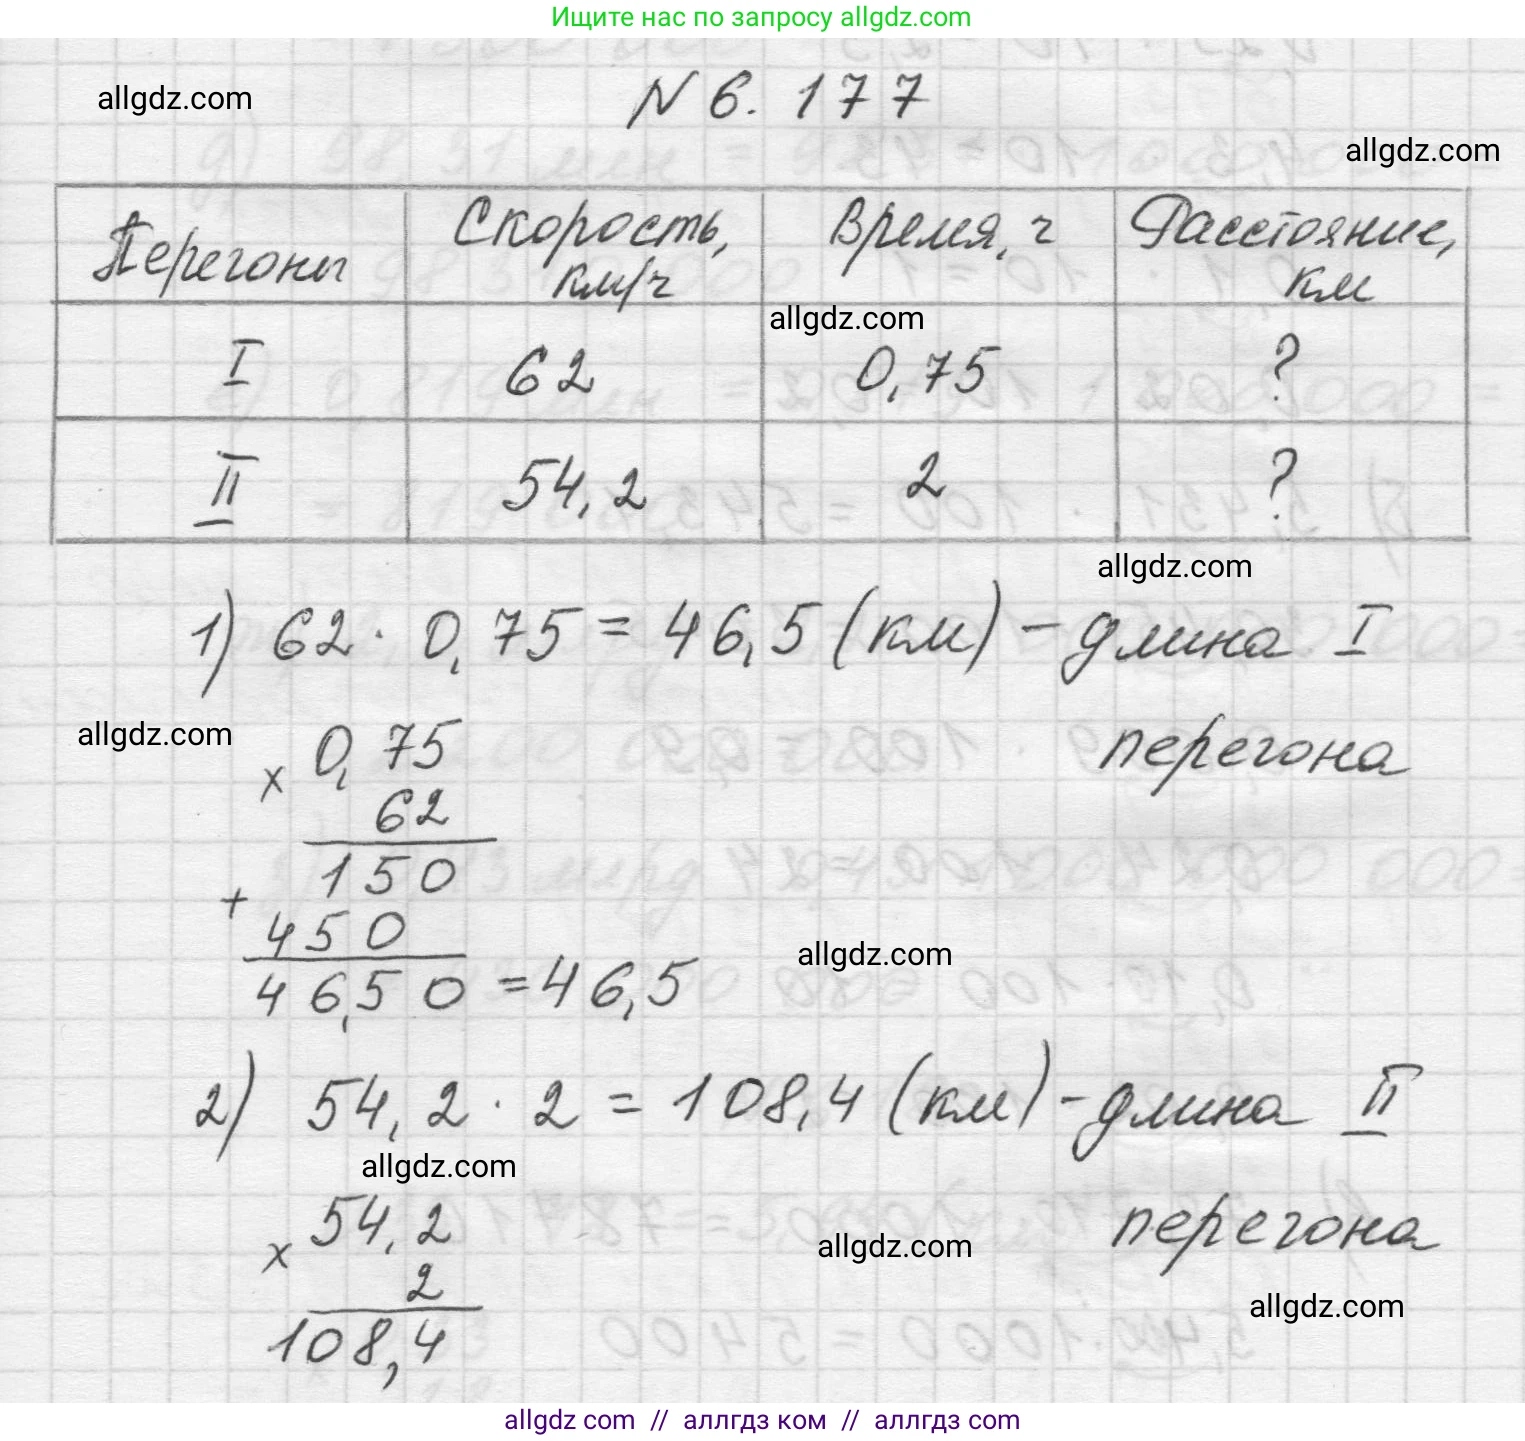 Ищите нас по запросу allgdz.com
allgdz.com
N 6. 177
allgdz.com
Перегоны Скорость, км/ч Время, ч Расстояние, км
allgdz.com
I 62 0,75 ?
II 54,2 2 ?
allgdz.com
1) 62 · 0,75 = 46,5 (км) - длина I
перегона
allgdz.com
x 0,75
62
150
+
450
46,50 = 46,5
allgdz.com
2) 54,2 · 2 = 108,4 (км) - длина II
перегона
allgdz.com
x 54,2
2
108,4
allgdz.com
allgdz.com
allgdz com // аллгдз ком // аллгдз com